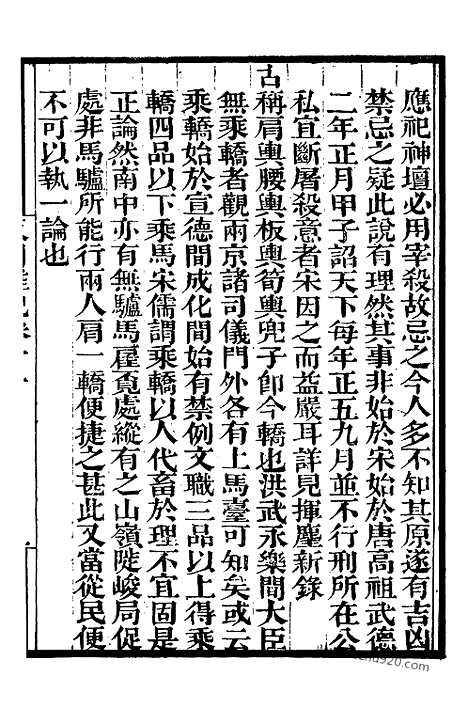 應祀神壇必用宰殺故忌之今人多不知其原遂有吉凶
禁忌之疑此說有理然其事非始於宋始於唐高祖武德
二年正月甲子詔天下每年正五九月並不行刑所在公
私宜斷屠殺意者宋因之而益嚴耳詳見揮麈新錄
古稱肩輿腰輿板輿筍輿兜子卽今轎也洪武永樂間大臣
無乘轎者觀兩京諸司儀門外各有上馬臺可知矣或云
乘轎始於宣德間成化間始有禁例文職三品以上得乘
轎四品以下乘馬宋儒謂乘轎以人代畜於理不宜固是
正論然南中亦有無驢馬雇覔處縱有之山嶺陡峻局促
處非馬驢所能行兩人肩一轎便捷之甚此又當從民便
不可以執一論也